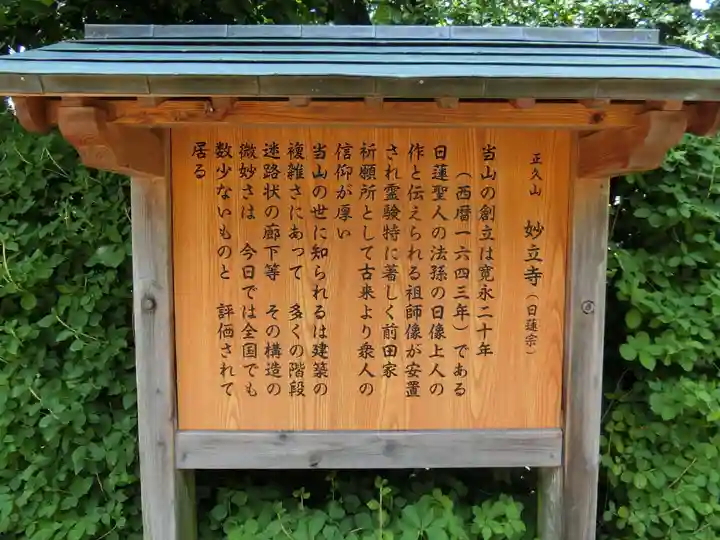 正久山　妙立寺（日蓮宗）
当山の創立は寛永二十年
（西暦一六四三年）である
日蓮聖人の法孫の日像上人の
作と伝えられる祖師像が安置
され霊験特に著しく前田家
祈願所として古来より衆人の
信仰が厚い
当山の世に知られるは建築の
複雑さにあって　多くの階段
迷路状の廊下等　その構造の
微妙さは　今日では全国でも
数少ないものと　評価されて
居る